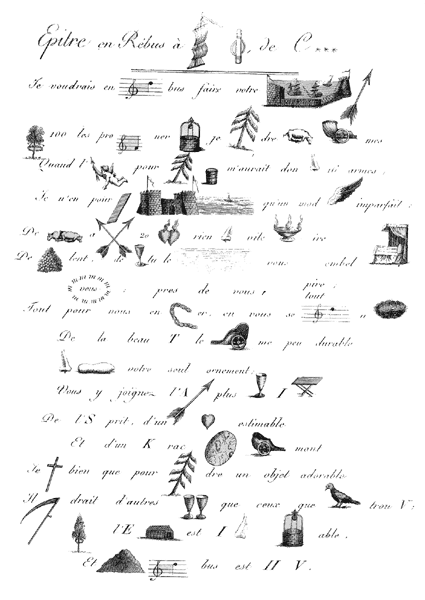 Epitre en Rébus à , de C...
Je voudrais en bus faire votre
100 les pro ner , je dre mes
Quand l' pour m'aurait don né armes ;
Je n'en pour qu'un mod imparfait :
De a 20 rien vile ire
De lent, de tu le vous embel
m m m m m m vous : pres de vous r pire ;
tout
Tout pour nous en er, en vous se u
De la beau T le me peu durable
votre seul ornement ;
Vous y joignez l'A plus I
De l'S prit, d'un estimable
Et d'un K rac mant
Je bien que pour dre un objet adorable
Il drait d'autres que ceux que trou V :
l'E est I able .
Et bus est H V .